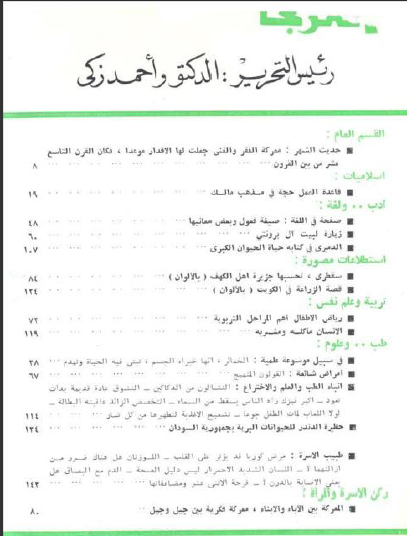 رئيس التحرير : الدكتور أحمد زكى
القسم العام :
■ حديث الشهر : معركة الفقر والغنى جعلت لها الاقدار موعدا ، فكان القرن التاسع
عشر من بين القرون ... ٨
اسلاميات :
■ قاعدة العمل حجة في مذهب مالك ... ١٩
أدب .. ولغة :
■ صفحة في اللغة : صيغة فعول وبعض معانيها ... ٤٨
■ زيارة لبيت آل برونتي ... ٦٠
■ الدميرى في كتابه حياة الحيوان الكبرى ... ١٠٧
استطلاعات مصورة :
■ سقطرى ، نحسبها جزيرة اهل الكهف ( بالالوان ) ... ٨٤
■ قصة الزراعة في الكويت ( بالالوان ) ... ١٢٤
تربية وعلم نفس :
■ رياض الاطفال اهم المراحل التربوية ... ٧٢
■ الانسان مأكله ومشربه ... ١١٩
طب .. وعلوم :
■ في سبيل موسوعة علمية : الخمائر ، انها خبراء الجسم ، تبنى فيه الحياة وتهدم ... ٢٨
■ امراض شائعة : القولون المتهيج ... ٦٧
■ انباء الطب والعلم والاختراع :
عود ـ اكبر نيزك رآه الناس يسقط من السماء ـ
لولا اللعاب لمات الطفل جوعا ـ تشعيع الاغذية لتطهيرها من كل ... ١١٤
■ حظيرة الدندر للحيوانات البرية بجمهورية السودان ... ١٣٤
■ طبيب الاسرة : مرض كوريا قد يؤثر على القلب ـ اللوزتان هل هناك ضرر من
ازالتهما ؟ ـ اللسان الشديد الاحمرار ليس دليل الصحة ـ الدم مع البصاق هل
يعنى الاصابة بالدرن ؟ ـ قرحة الاثنى عشر ومضاعفاتها ... ١٤٢
ركن الاسرة والمرأة :
■ المعركة بين الآباء والابناء ، معركة فكرية بين جيل وجيل ... ٨٠